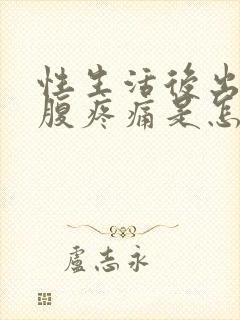 性生活後出
腹疼痛是怎
盧志永